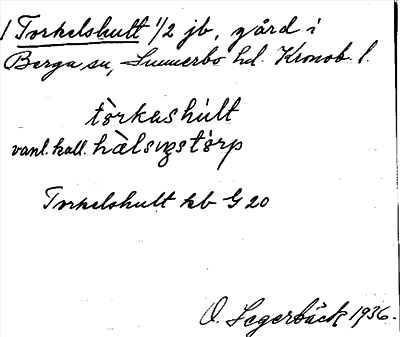 1 Torkelshult 1/2 jb, gård i
Berga sn, Sunnerbo hd. Kronob. l.
tòrkashúlt
vanl. kall. hàlsıŋstórp
Torkelshult kb G 20
O. Segerbäck 1936.